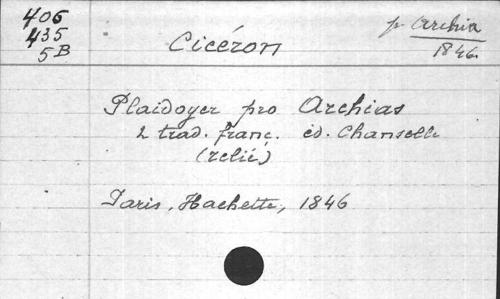 406
435
5B
Cicéron
p Archia
1846
Plaidoyer pro Archias
2 trad. franç. éd. Chanselle
(relié)
Paris, Hachette, 1846